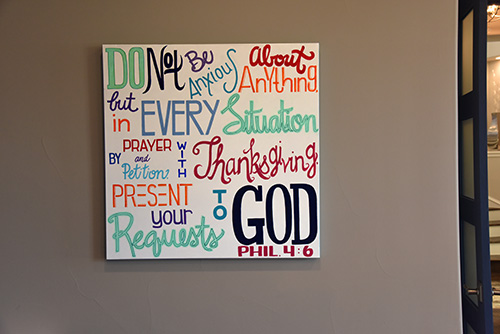 DO NOT Be Anxious About Anything,
but in EVERY Situation
BY PRAYER and Petition, WITH Thanksgiving,
PRESENT your Requests TO GOD
PHIL. 4:6